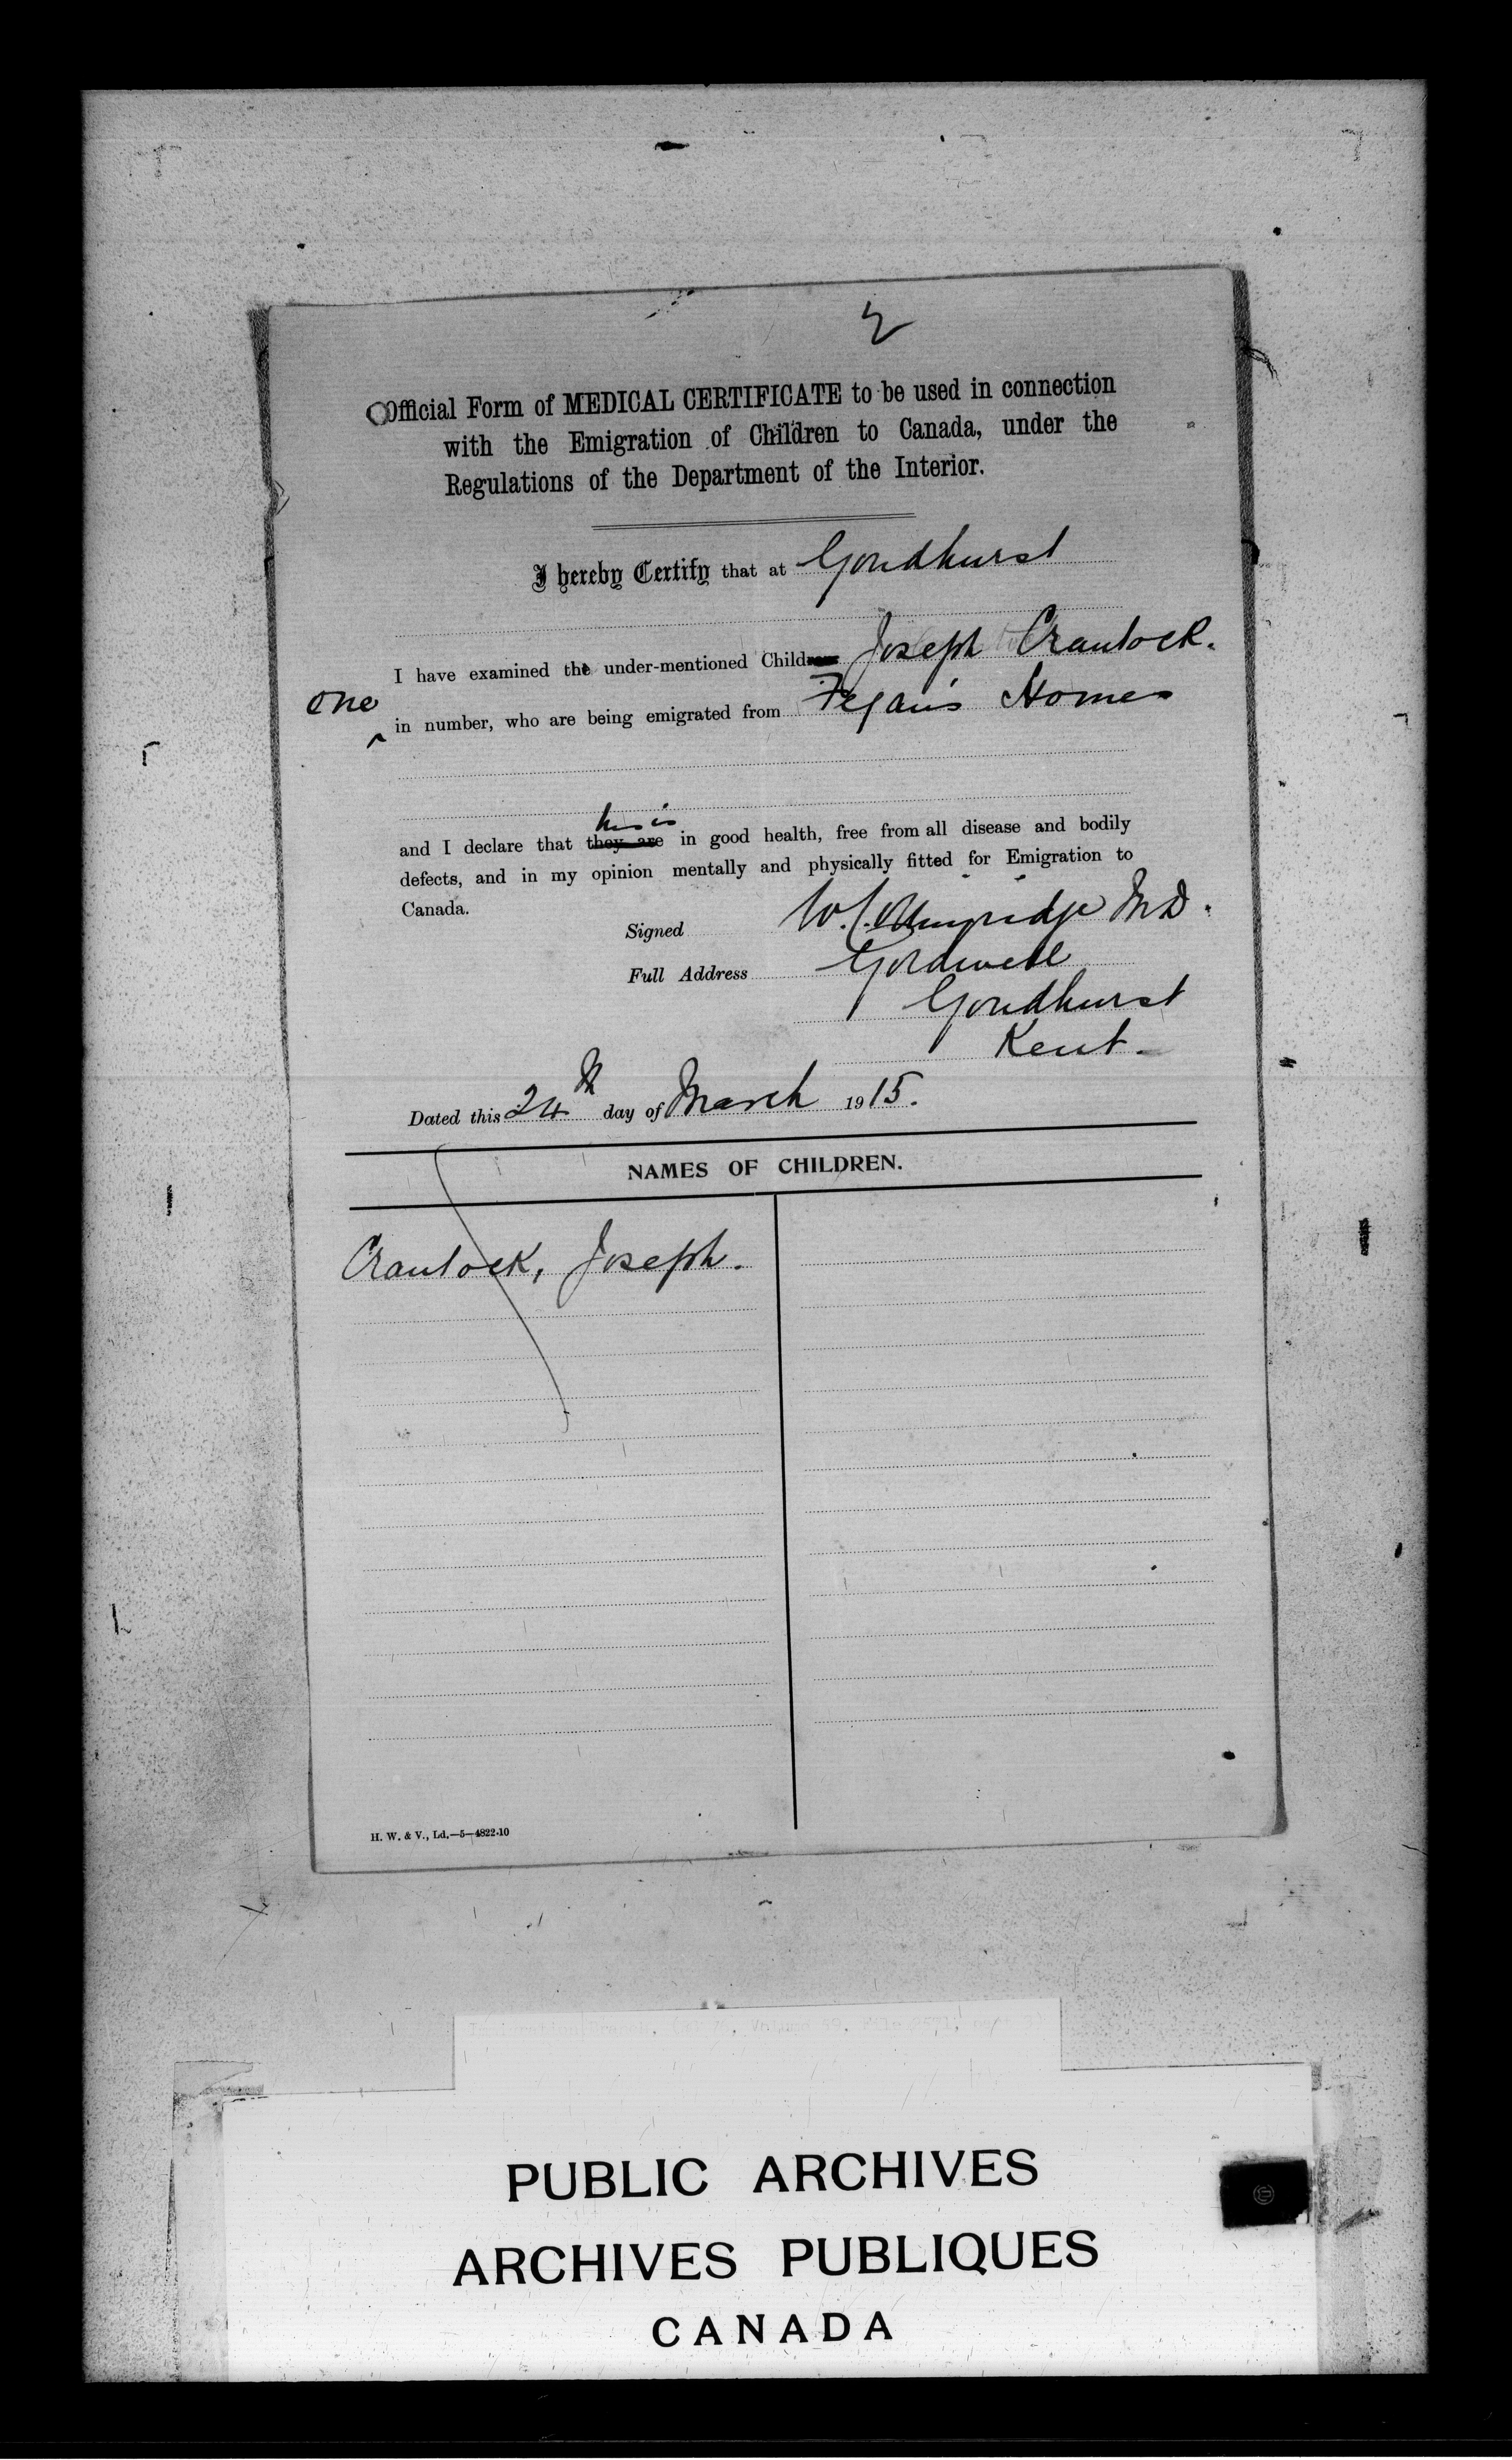 2
Official Form of MEDICAL CERTIFICATE to be used in connection
with the Emigration of Children to Canada, under the
Regulations of the Department of the Interior.
I hereby Certify that at Goudhurst
I have examined the under-mentioned Child Joseph Crantock.
one
in number, who are being emigrated from Fegan's Homes
he is
and I declare that they are in good health, free from all disease and bodily
defects, and in my opinion mentally and physically fitted for Emigration to
Canada.
Signed W. M.D.
Full Address
Goudhurst
Kent.
Dated this 24th day of March 1915.
NAMES OF CHILDREN.
Crantock, Joseph.
H. W. & V., Ld.—5—4822-10
PUBLIC ARCHIVES
ARCHIVES PUBLIQUES
CANADA